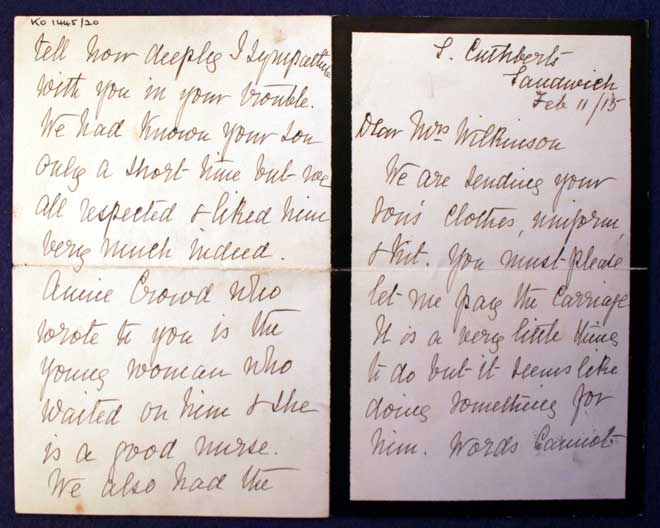 S. Cuthberts
Sandwich
Feb 11/15
Dear Mrs Wilkinson
We are sending your
son's clothes, uniform,
& kit. You must please
let me pay the carriage
It is a very little thing
to do but it seems like
doing something for
him. Words cannot
KO 1445/20
tell how deeply I sympathise
with you in your trouble.
We had known your son
only a short time but we
all respected & liked him
very much indeed.
Annie Crowd who
wrote to you is the
young woman who
waited on him & she
is a good nurse.
We also had the